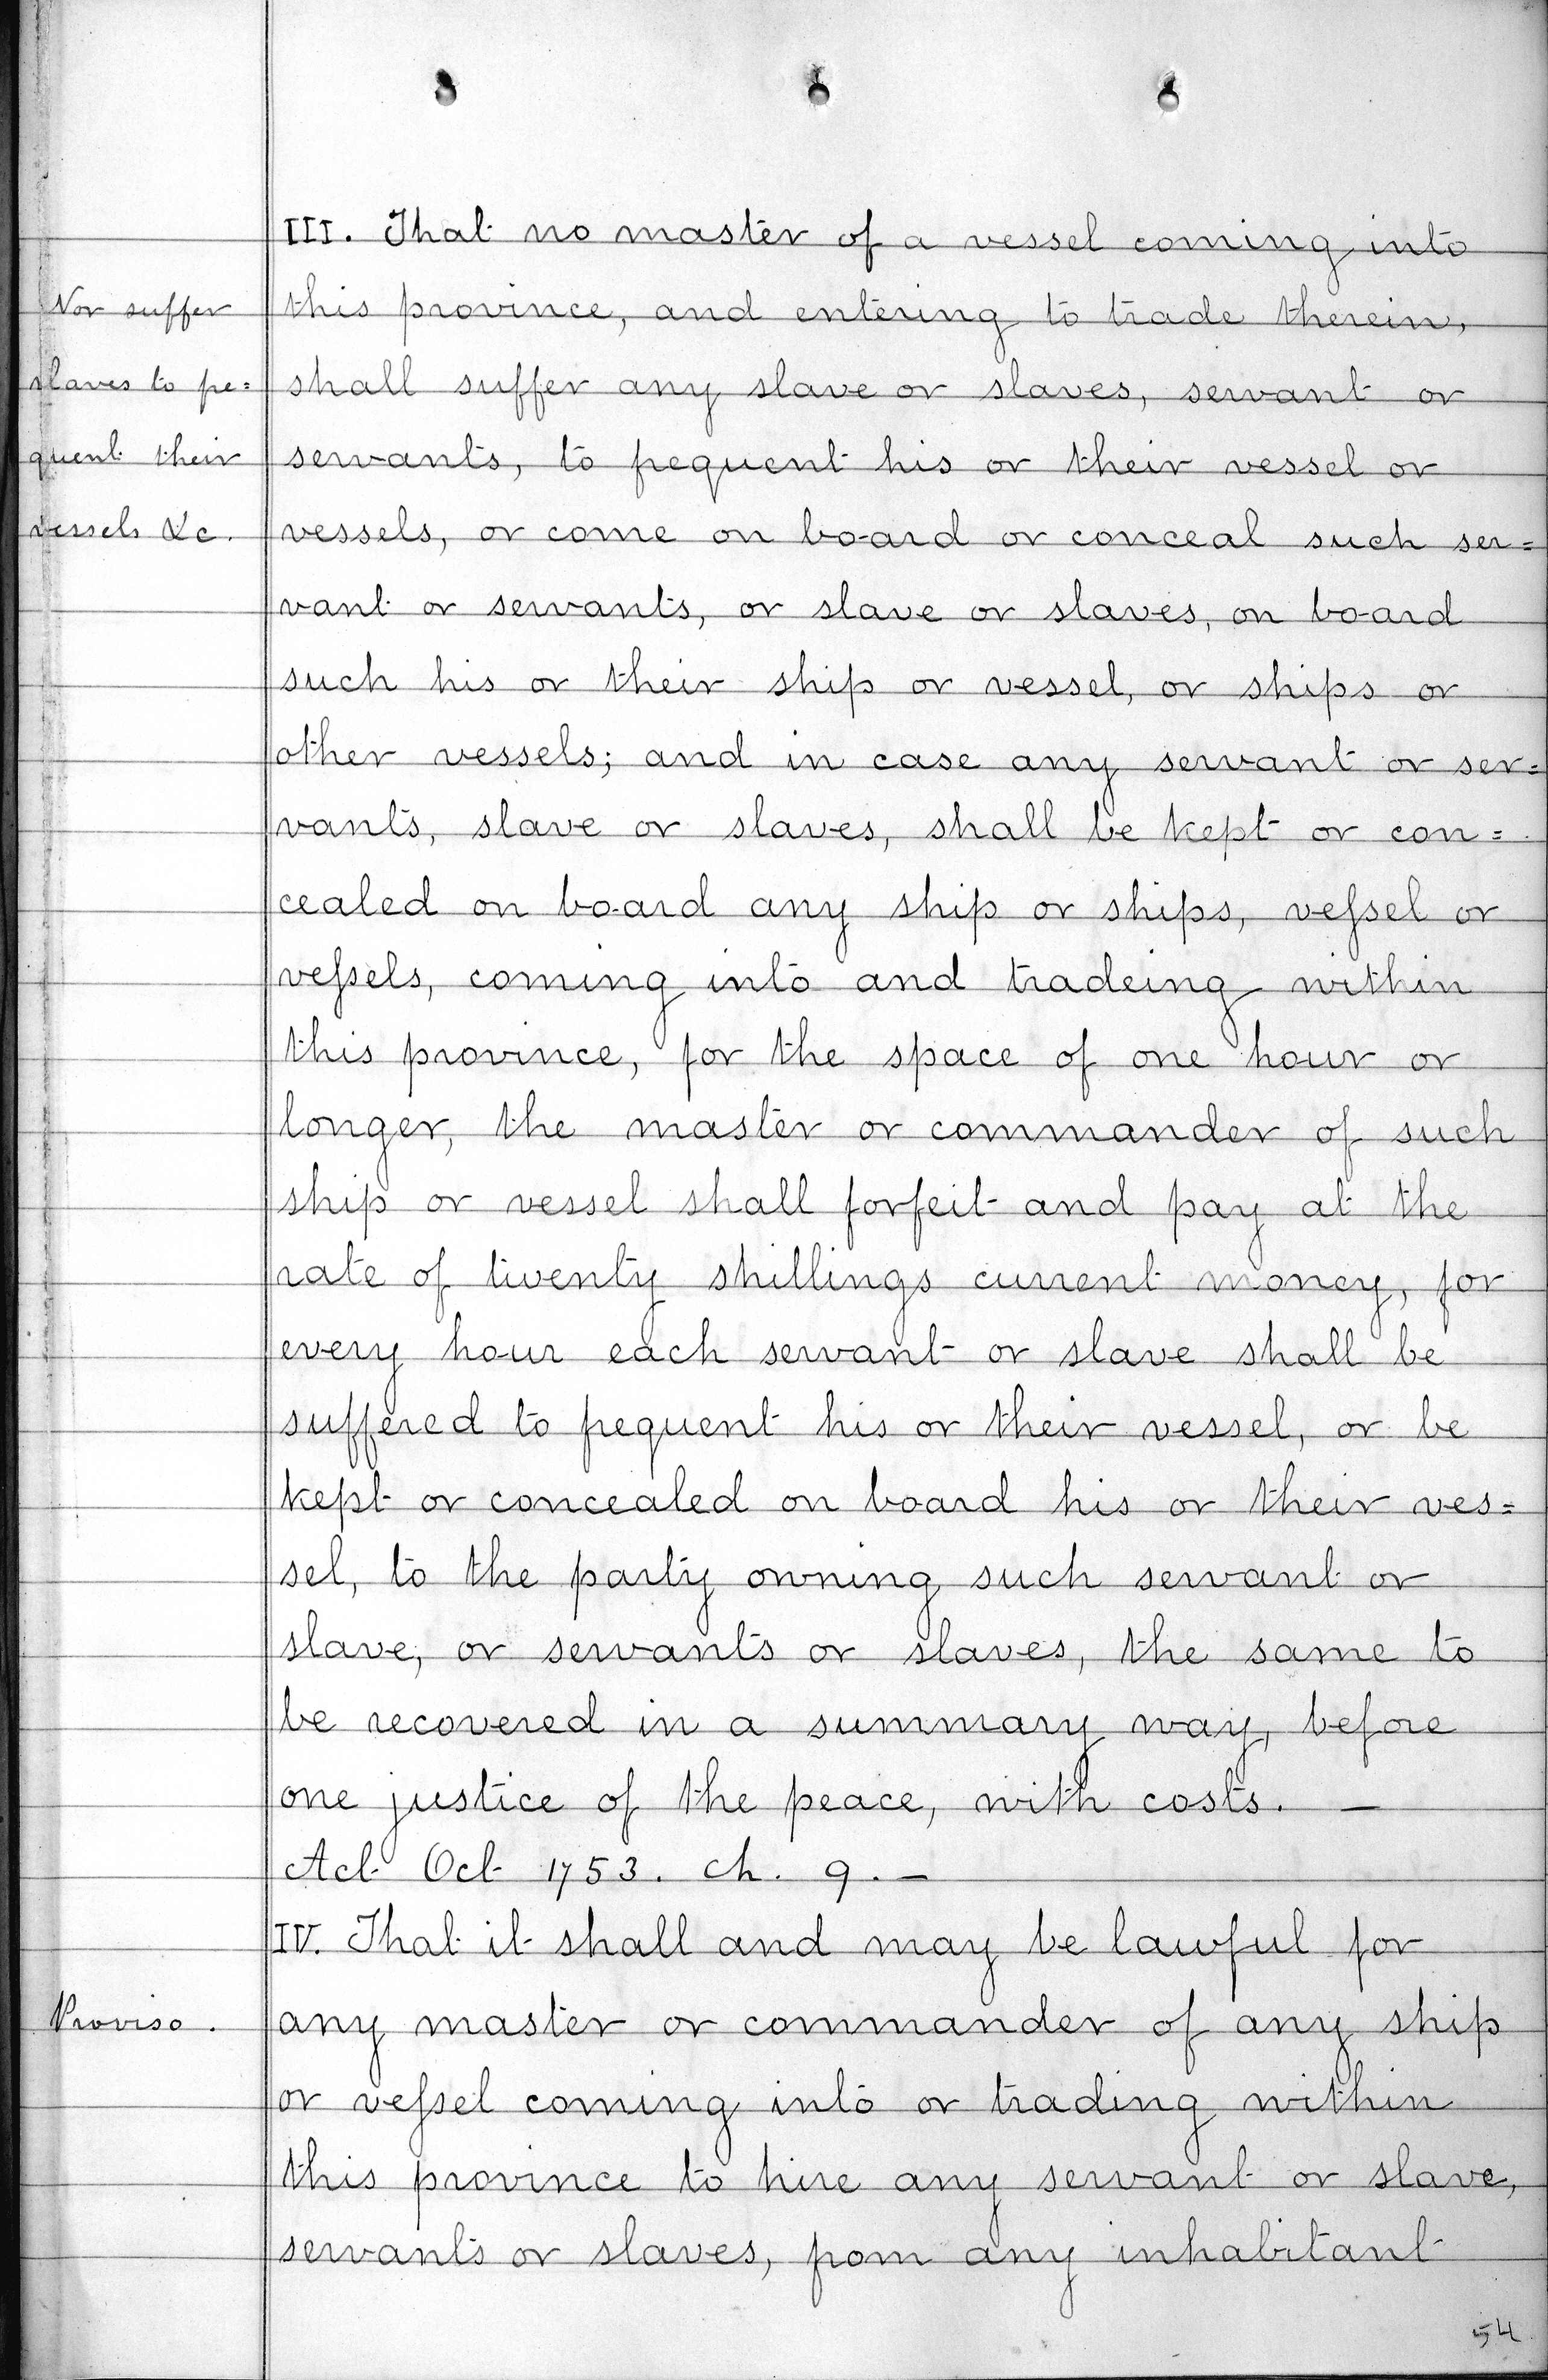 III. That no master of a vessel coming into
Nor suffer
this province, and entering to trade therein,
slaves to fre=
shall suffer any slave or slaves, servant or
quent their
servants, to frequent his or their vessel or
vessels &c.
vessels, or come on board or conceal such ser=
vant or servants, or slave or slaves, on board
such his or their ship or vessel, or ships or
other vessels; and in case any servant or ser=
vants, slave or slaves, shall be kept or con=
cealed on board any ship or ships, veſsel or
veſsels, coming into and tradeing within
this province, for the space of one hour or
longer, the master or commander of such
ship or vessel shall forfeit and pay at the
rate of twenty shillings current money, for
every hour each servant or slave shall be
suffered to frequent his or their vessel, or be
kept or concealed on board his or their ves=
sel, to the party owning such servant or
slave, or servants or slaves, the same to
be recovered in a summary way, before
one justice of the peace, with costs. —
Act Oct 1753. Ch. 9. —
IV. That it shall and may be lawful for
Proviso.
any master or commander of any ship
or veſsel coming into or trading within
this province to hire any servant or slave,
servants or slaves, from any inhabitant
54